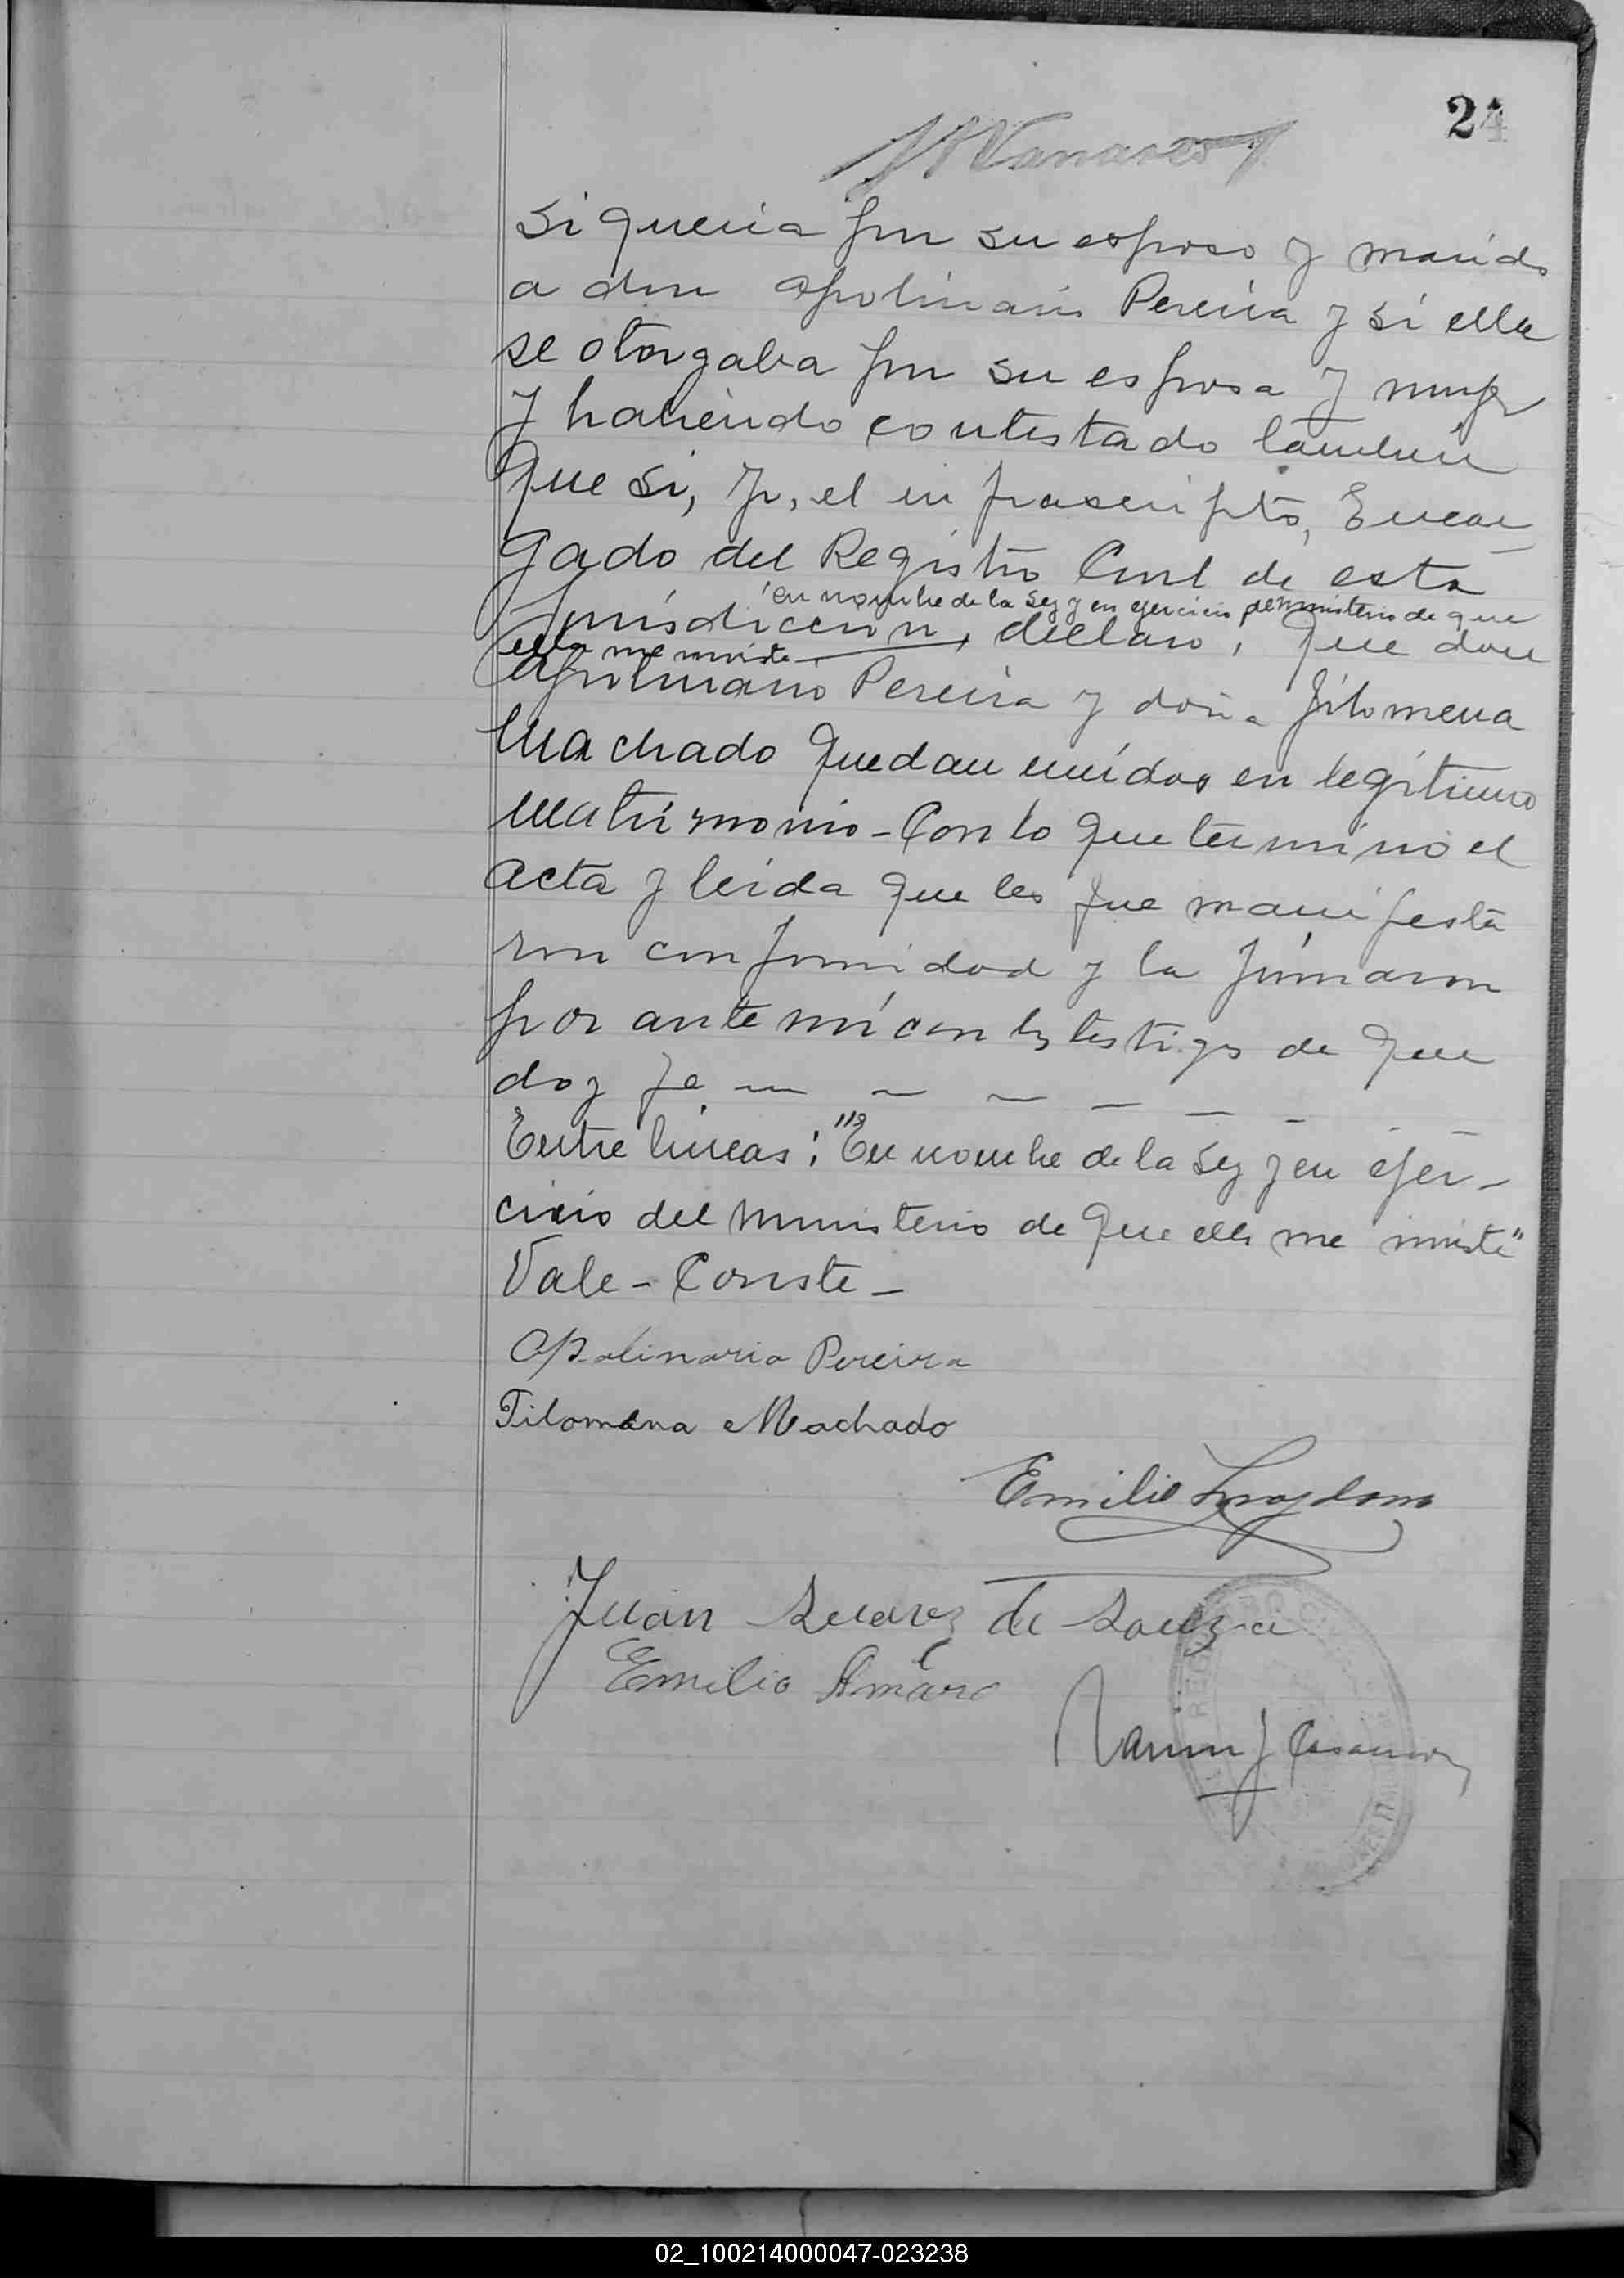 24
si queria por su esposo y marido
a don Apolinario Pereira y si ella
se otorgaba por su esposa y mujer
y habiendo contestado también
que si, yo, el infrascripto, Encar
gado del Registro Civil de esta
en nombre de la Ley y en ejercicio del ministerio de que
Jurisdiccion, declaro, que don
ella me inviste
Apolinario Pereira y doña Filomena
Machado quedan unidos en legítimo
Matrimonio - Con lo que terminó el
acta y leida que les fue manifesta
ron conformidad y la firmaron
por ante mí con los testigos de que
doy fe
Entre líneas: "En nombre de la Ley y en ejer-
cicio del ministerio de que ella me inviste"
Vale - Conste -
Apolinario Pereira
Filomena Machado
Emilio
Juan Suarez de Souza
Emilio Amaro
REGISTRO
02_100214000047-023238